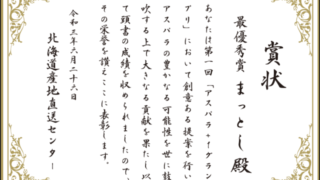 賞状
最優秀賞 まっとし 殿
あなたは第一回「アスパラ+1グラン
プリ」において創意ある提案を行い
アスパラの豊かな可能性を世に鼓
吹する上で大きなる貢献を果たし以
て頭書の成績を収められましたので、
その栄誉を讃えここに表彰します。
令和三年六月二十六日
北海道産地直送センター